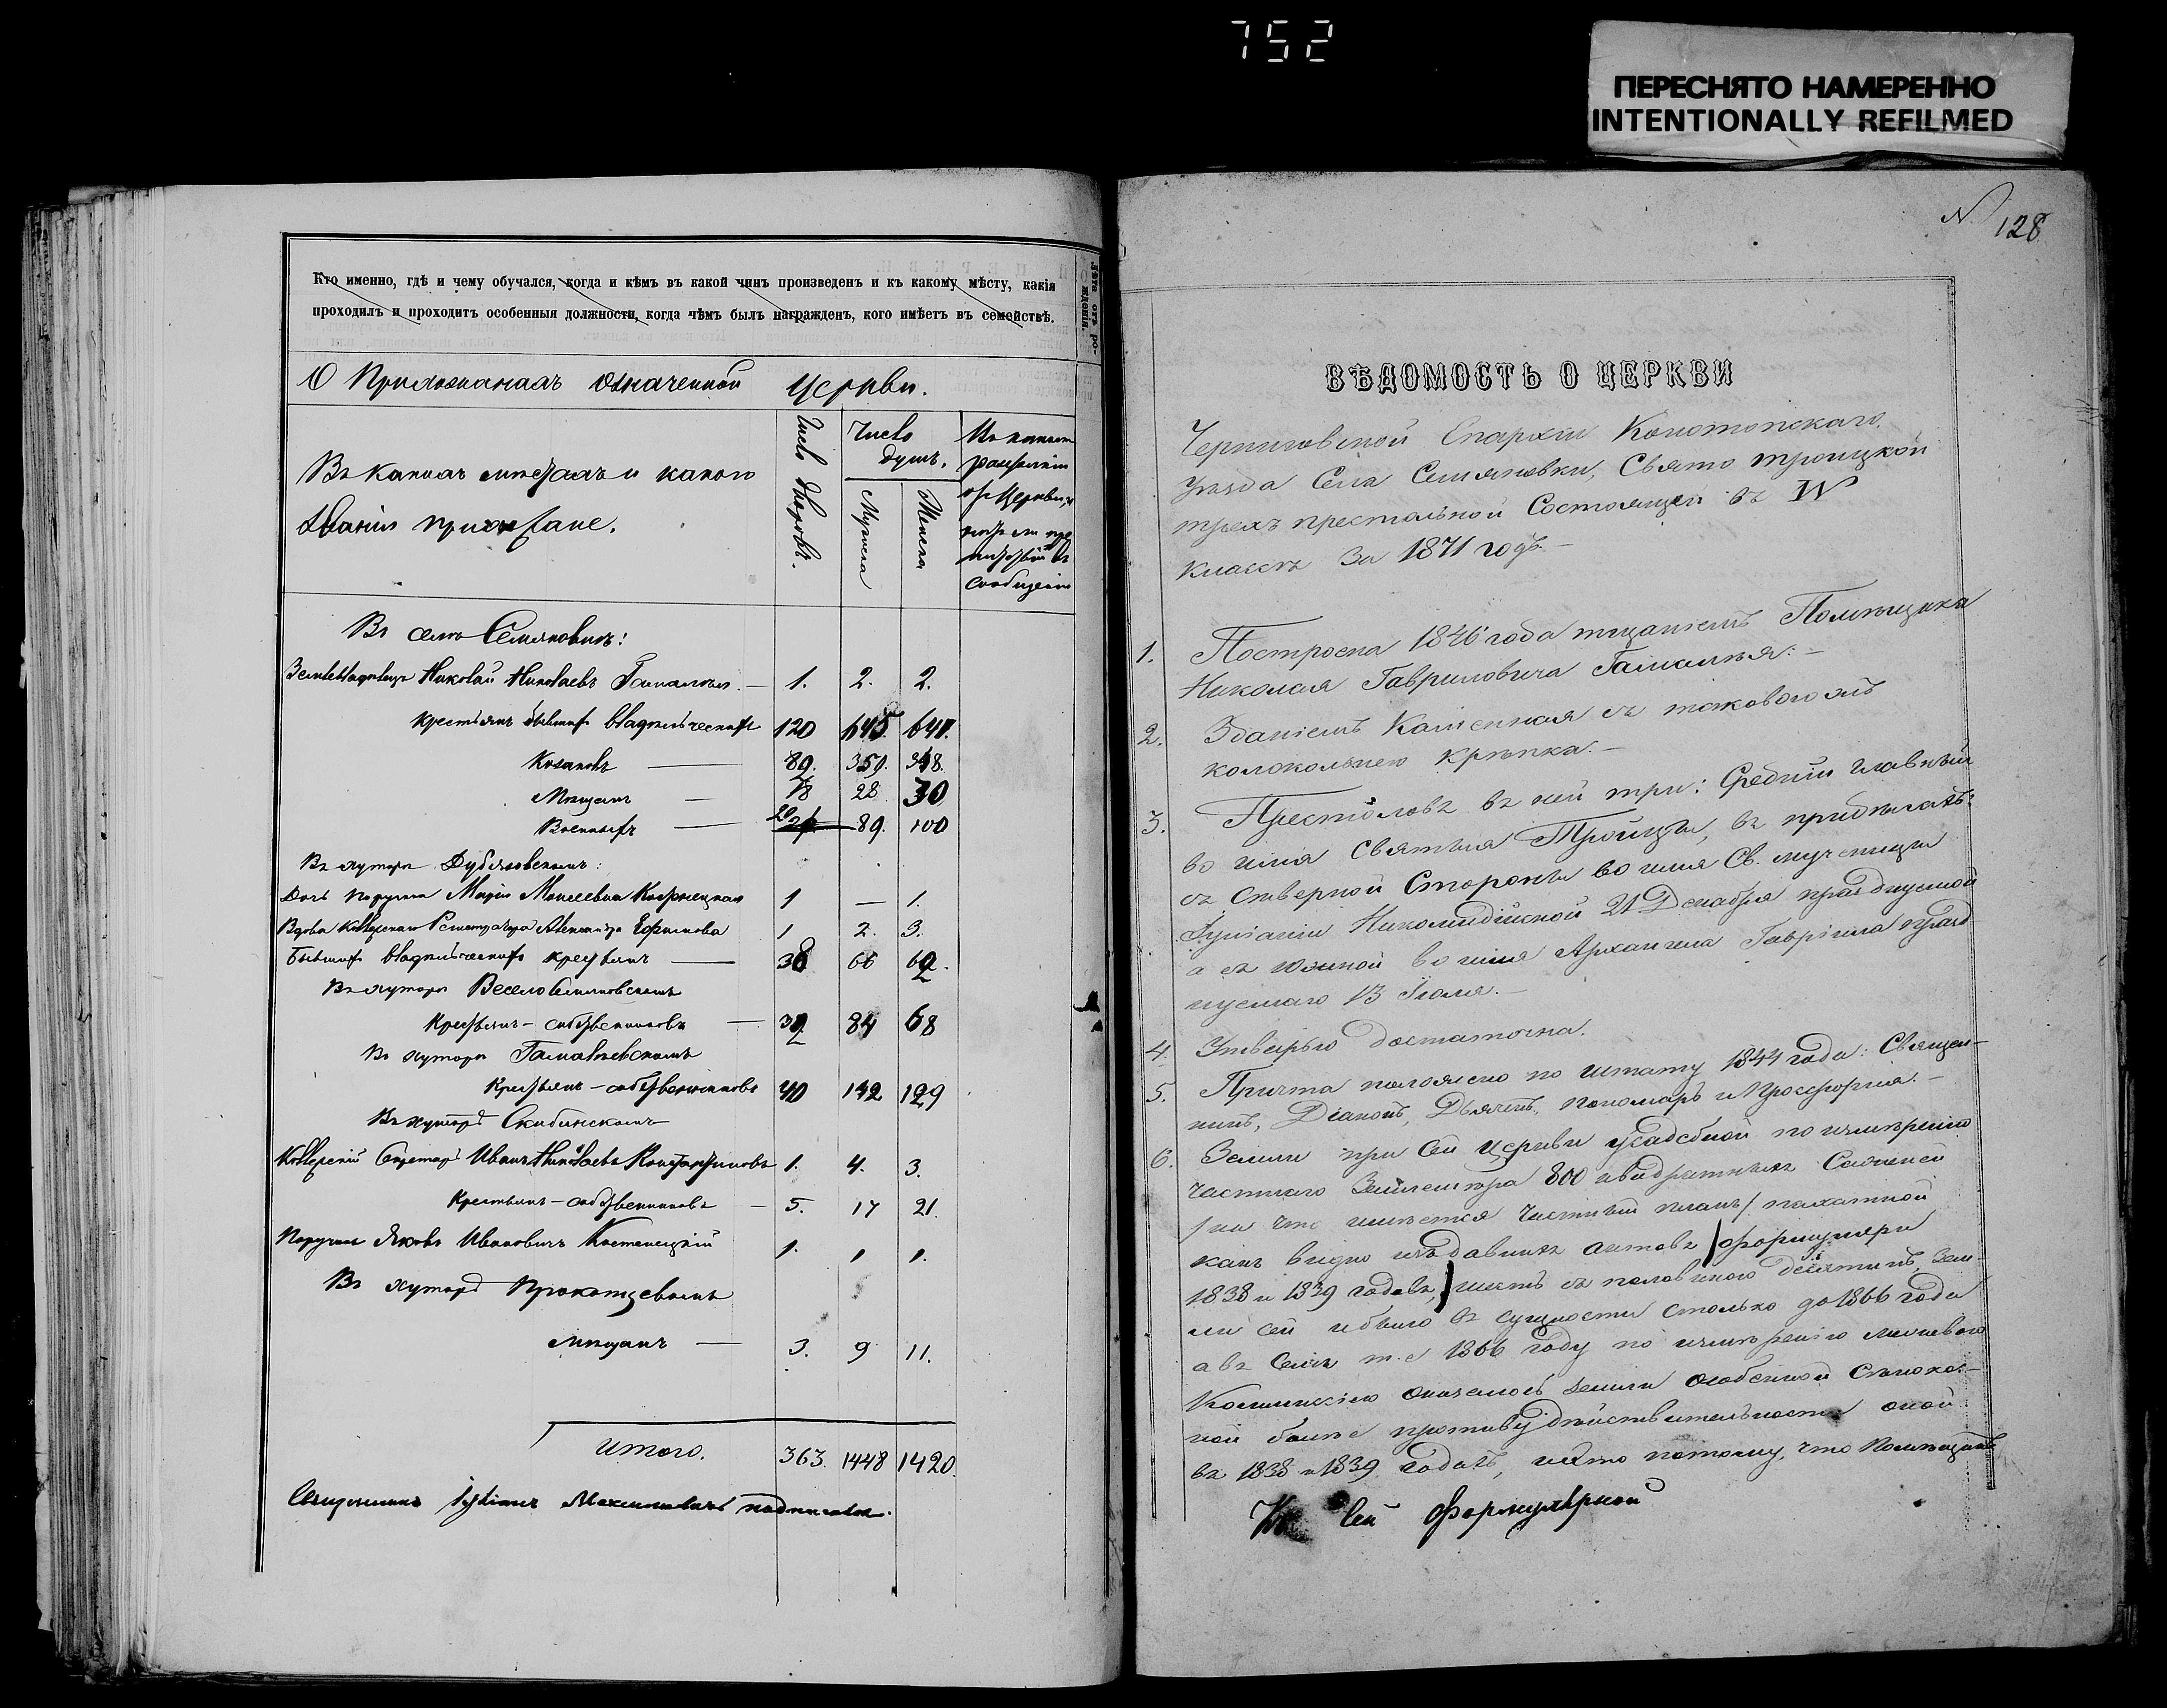 752
ПЕРЕСНЯТО НАМЕРЕННО
INTENTIONALLY REFILMED
Кто именно, гдѣ и чему обучался, когда и кѣмъ въ какой чинъ произведенъ и къ какому мѣсту, какія
проходилъ и проходитъ особенныя должности, когда чѣмъ былъ награжденъ, кого имѣетъ въ семействѣ.
Лѣта отъ ро-
жденія.
О Прихожанахъ означенной церкви.
Въ какихъ мѣстахъ и какого
званія прихожане.
Число дворовъ.
Число
душъ.
Мужеска
Женска
Въ какомъ
разстояніи
отъ Церкви, и
нѣтъ ли пре
пятствій въ
сообщеніи
Въ селѣ Семяновкѣ:
Землевладѣлецъ Николай Николаевъ Гамалѣя. — 1. 2. 2.
Крестьянъ бывшихъ владѣльческихъ 120 645 641.
Козаковъ — 89. 350. 348.
Мѣщанъ — 18 28 30
Военныхъ — 20 89. 100
Въ хуторѣ Дубяговскомъ:
Дочь поручика Марія Моисеевна 1 — 1.
Вдова Коллежскаго Регистратора Александра Ефимова 1 2. 3.
Бывшихъ владѣльческихъ крестьянъ — 38 66 62.
Въ хуторѣ Весело Семяновскомъ
Крестьянъ-собственниковъ — 32 84 68
Въ хуторѣ Гамалѣевскомъ
Крестьянъ-собственниковъ 40 142 129
Въ хуторѣ Скибинскомъ
Коллежскій Секретарь Иванъ Николаевъ Константиновъ 1. 4. 3.
Крестьянъ-собственниковъ — 5. 17 21.
Поручикъ Яковъ Ивановичъ Костенецкій 1. 1 1.
Въ хуторѣ
мѣщанъ — 3. 9 11.
Итого. 363. 1448 1420.
Священникъ Іустинъ Максимовичъ подписался.
N 128
ВѢДОМОСТЬ О ЦЕРКВИ
Черниговской Епархіи Конотопскаго
уѣзда Села Семяновки, Свято Троицкой
трехъ престольной Состоящей въ IV
классѣ за 1871 годъ.—
1. Построена 1846 года тщаніемъ Помѣщика
Николая Гавриловича Гамалѣя.—
2. Зданіемъ Каменная съ таковою жъ
колокольнею крѣпка.—
3. Престоловъ въ ней три: Средній главный
во имя Святыя Троицы, въ придѣлахъ:
съ Сѣверной Стороны во имя Св. мученицы
Іуліаніи Никомидійской 21 Декабря празднуемой
а съ южной во имя Архангела Гавріила празд
нуемаго 13 Іюля.—
4. Утварью достаточна.
5. Причта положено по штату 1844 года: Священ-
никъ, Діаконъ, Дьячекъ, пономарь и Просфорня.—
6. Земли при сей церкви усадебной по измѣренію
Частнаго Землемѣра 800 квадратныхъ Саженей
/на что имѣется частный планъ/ пахатной
какъ видно изъ давнихъ актовъ /формуляри
1838 и 1839 годовъ,/ шесть съ половиною десятинъ, Зем-
ли сей и было въ сущности столько до 1866 года
а въ Семъ т. е 1866 году по измѣренію межеваго
Коммиссіею оказалось земли особенной Сѣнокос-
ной болѣе противу дѣйствительности оной
въ 1838 и 1839 годахъ, и это потому, что Помѣщикъ
Къ сей формулярной